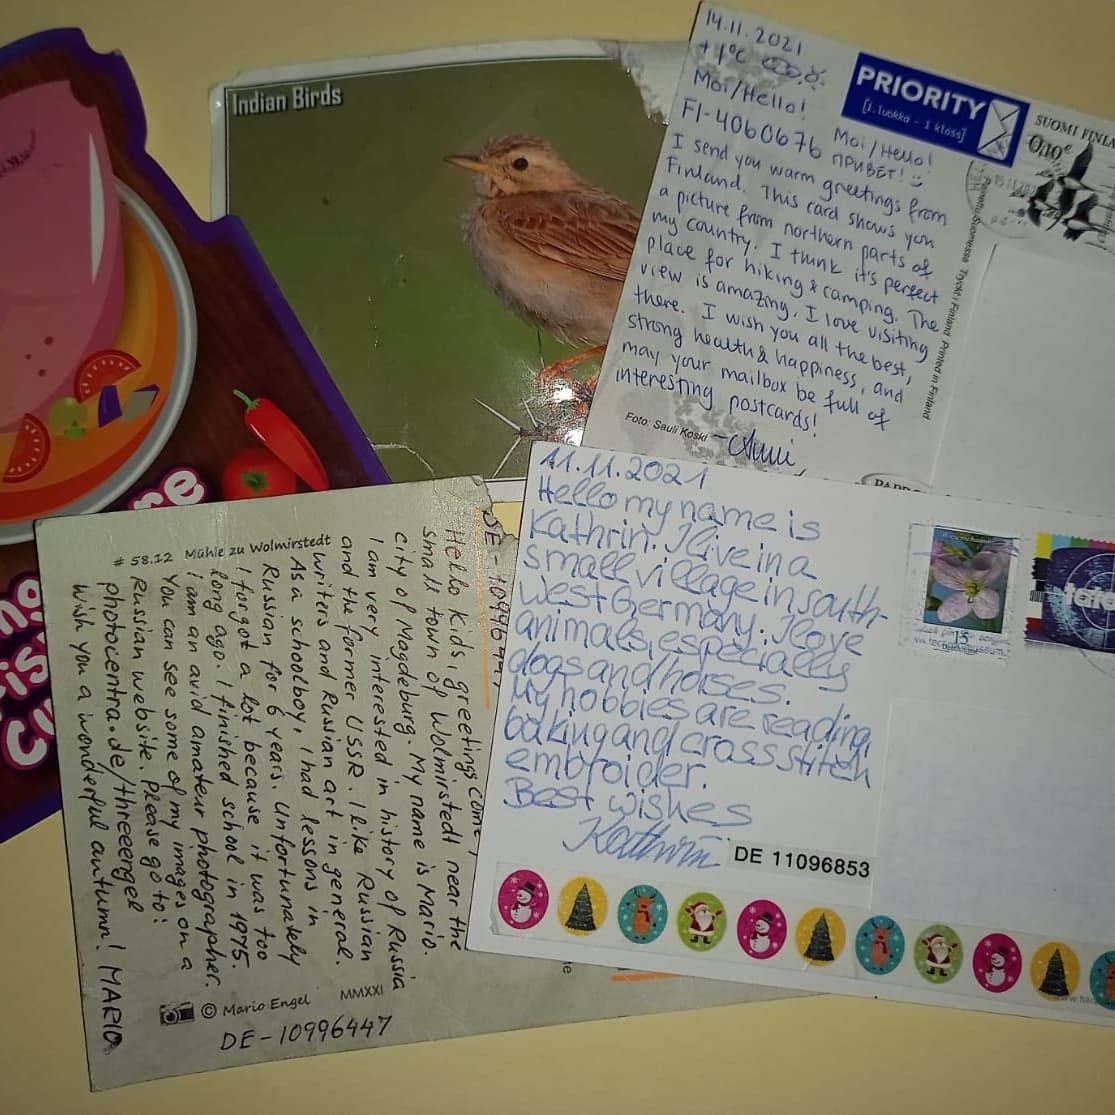 Indian Birds
14.11.2021
+1°C
Moi/Hello!
FI-4060676
Moi/Hello!
ПРИВЕТ!
I send you warm greetings from
Finland. This card shows you
a picture from northern parts of
my country. I think it's perfect
place for hiking & camping. The
view is amazing, I love visiting
there. I wish you all the best,
strong health & happiness, and
may your mailbox be full of
interesting postcards!
Foto: Sauli Koski
PRIORITY
[1. luokka - 1 klass]
SUOMI FINLA
0,10€
Painettu Suomessa Tryckt i Finland Printed in Finland
11.11.2021
Hello my name is
Kathrin. I live in a
small village in south-
west Germany. I love
animals, especially
dogs and horses.
My hobbies are reading,
baking and cross stitch
embroider.
Best wishes
Kathrin
DE 11096853
15
# 58.12 Mühle zu Wolmirstedt
DE-10996447
Hello kids, greetings come
small town of Wolmirstedt near the
city of Magdeburg. My name is Mario.
I am very interested in history of Russia
and the former USSR. I like Russian
writers and Russian art in general.
As a schoolboy, I had lessons in
Russian for 6 years. Unfortunately
I forgot a lot because it was too
long ago. I finished school in 1975.
I am an avid amateur photographer.
You can see some of my images on a
Russian website. Please go to:
photocentra.de/threeergel
Wish you a wonderful autumn! MARIO
© Mario Engel MMXXI
DE-10996447